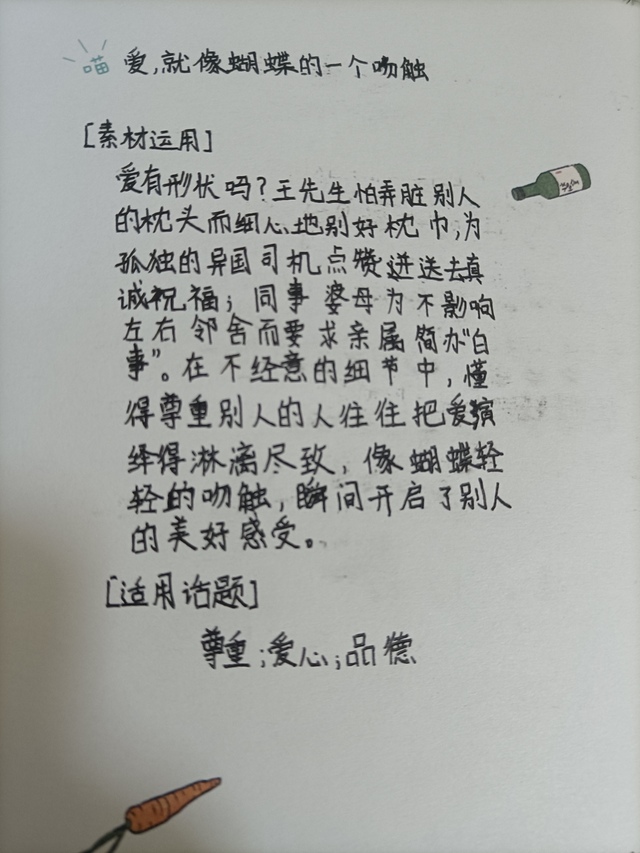 喵 爱,就像蝴蝶的一个吻触
[素材运用]
爱有形状吗?王先生怕弄脏别人
的枕头而细心地别好枕巾,为
孤独的异国司机点赞并送去真
诚祝福;同事婆母为不影响
左右邻舍而要求亲属简办"白
事"。在不经意的细节中,懂
得尊重别人的人往往把爱演
绎得淋漓尽致,像蝴蝶轻
轻的吻触,瞬间开启了别人
的美好感受。
[适用话题]
尊重;爱心;品德